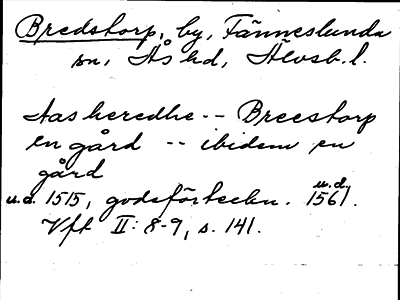 Bredstorp, by, Fänneslunda
sn, Ås hd, Älvsb. l.
Aasheredhe -- Breestorp
en gård -- ibidem en
gård
u.d. 1515, godsförteckn. u.d. 1561.
Vft II: 8-9, s. 141.